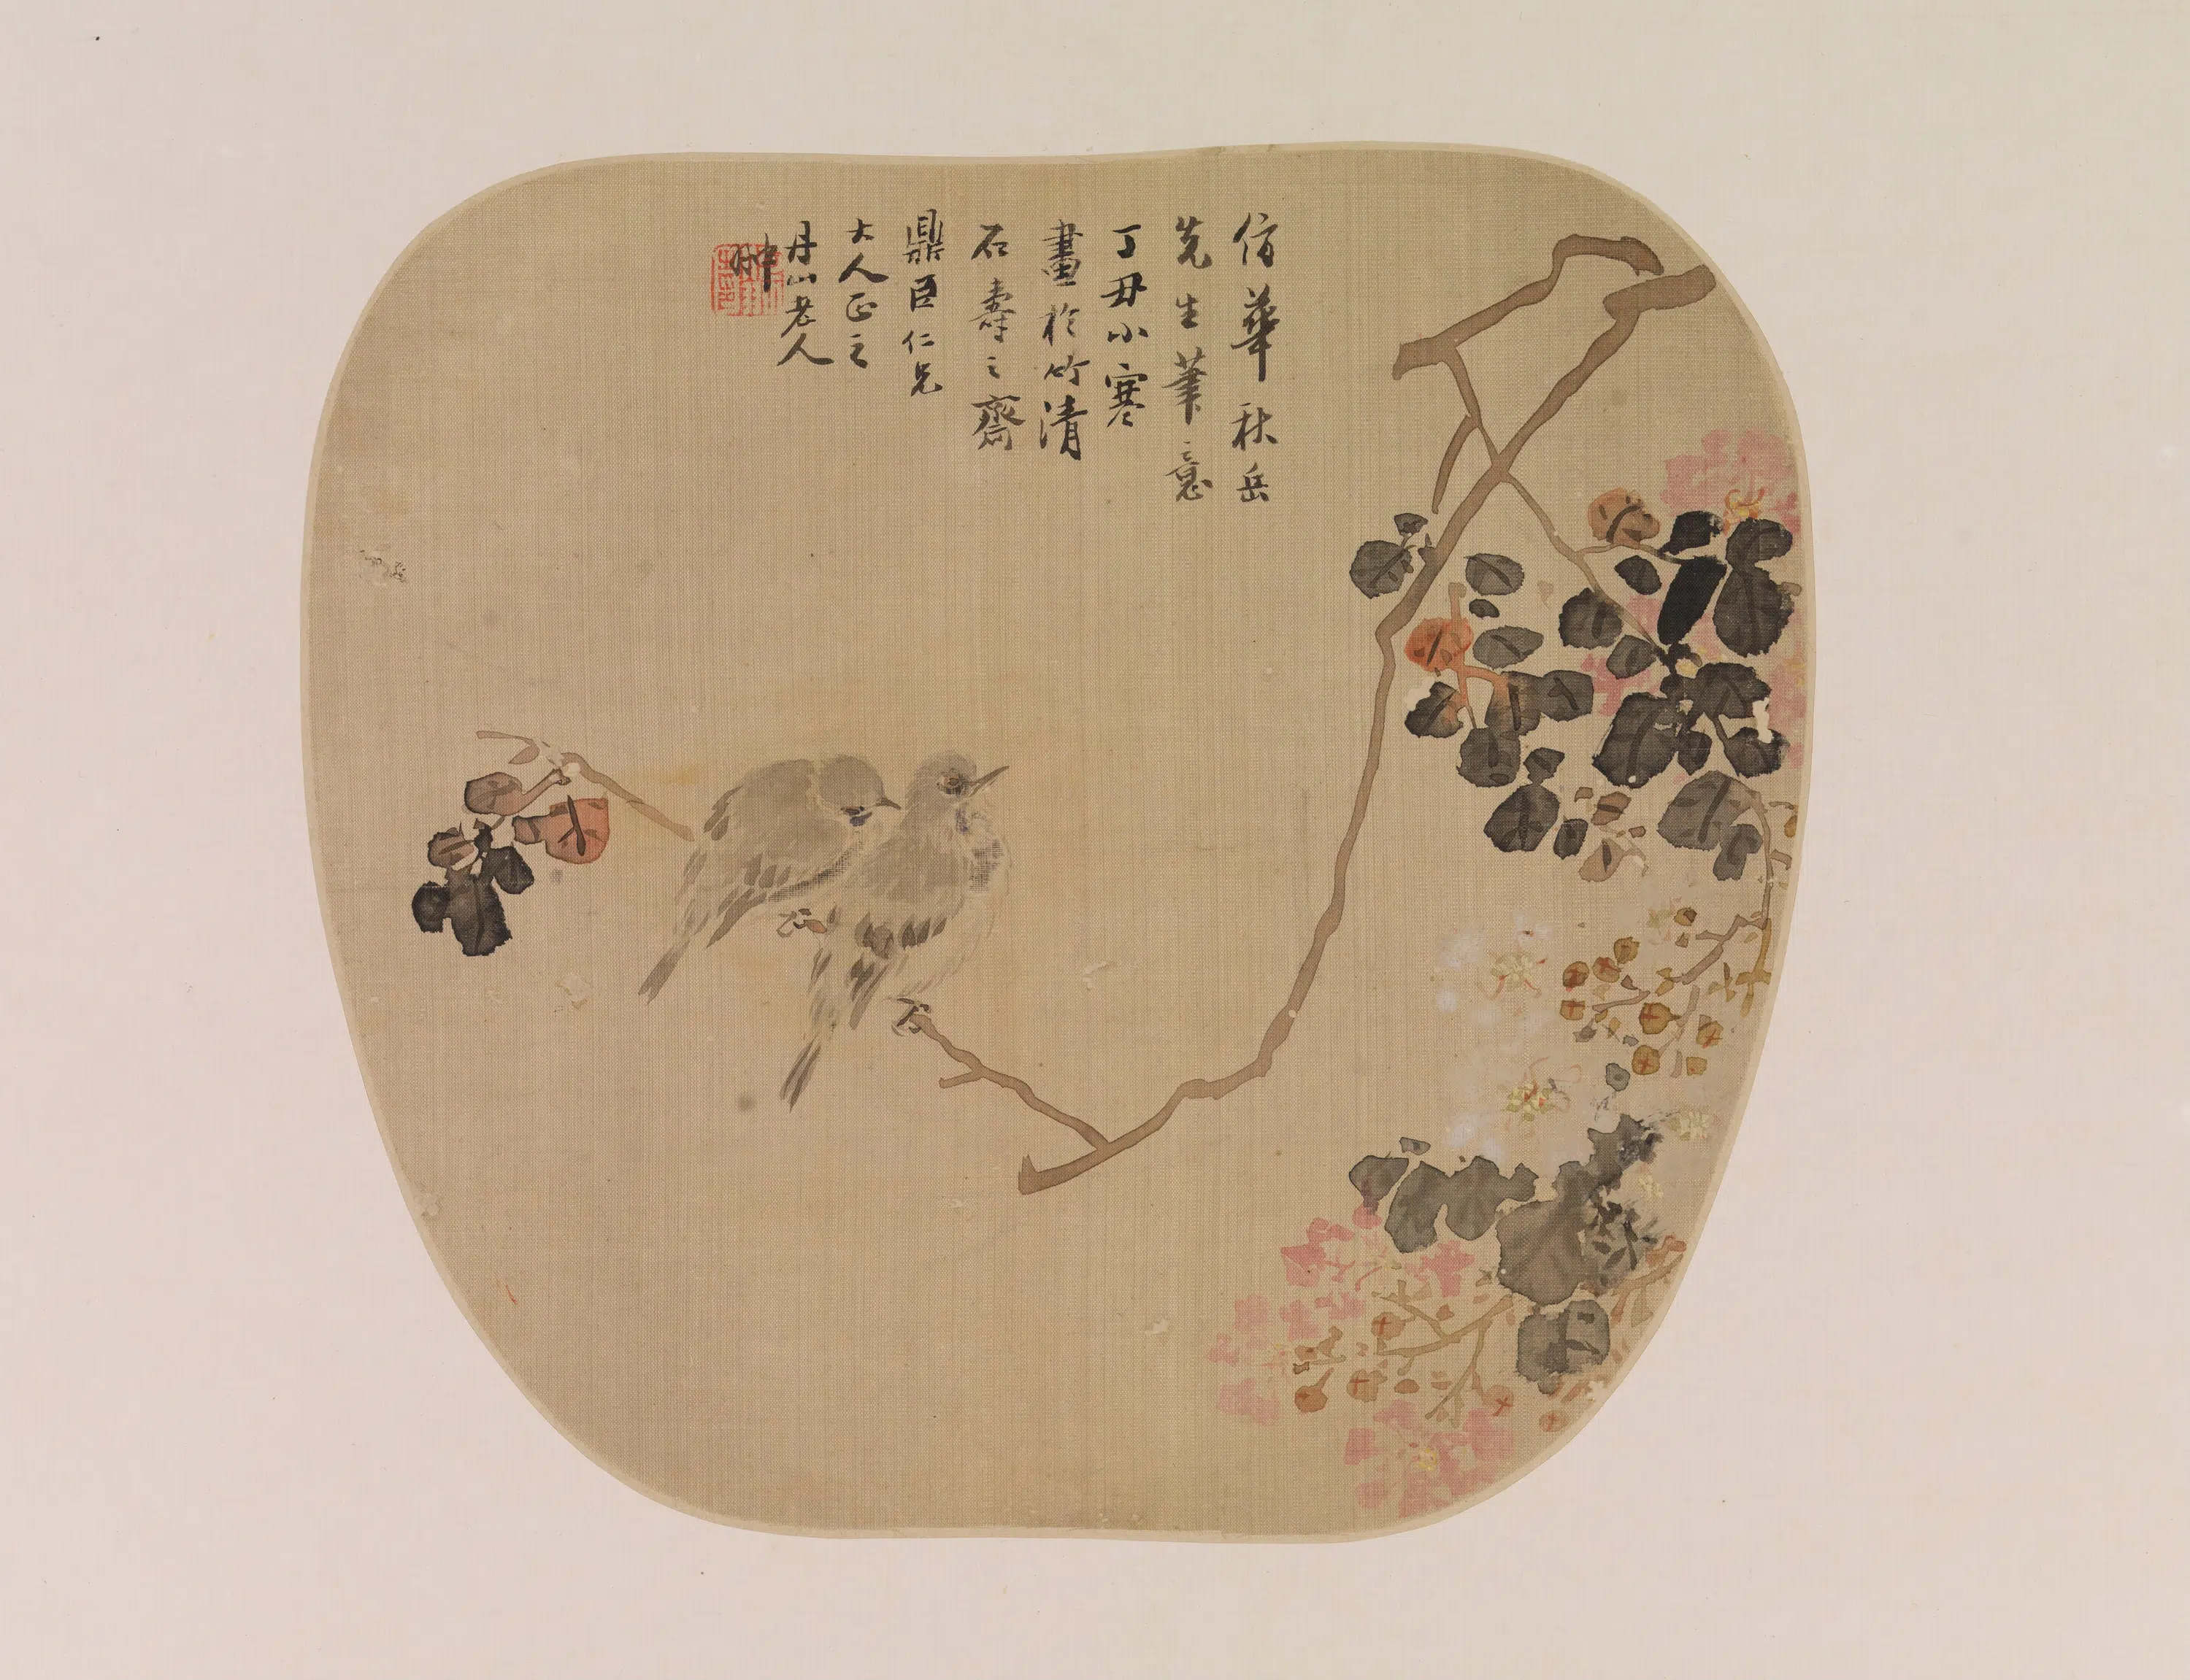 仿華秋岳
先生筆意
丁丑小寒
畫於竹清
石壽之齋
鼎臣仁兄
大人正之
丹山老人
翀